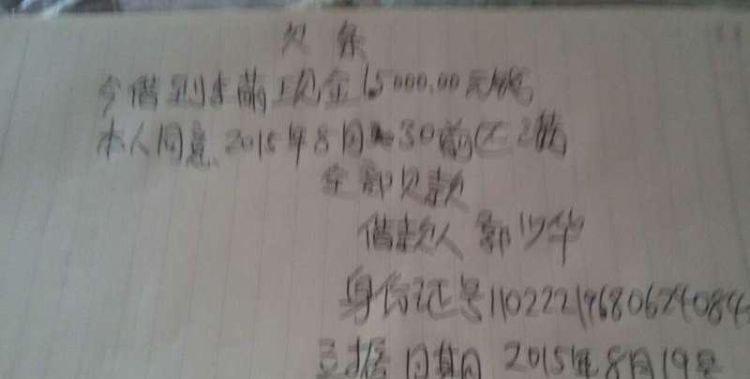 欠条
今借到李萌现金15000.00元钱
本人同意2015年8月30前还清
全部欠款
借款人 郭少华
身份证号110222196806240843
立据日期 2015年8月19号